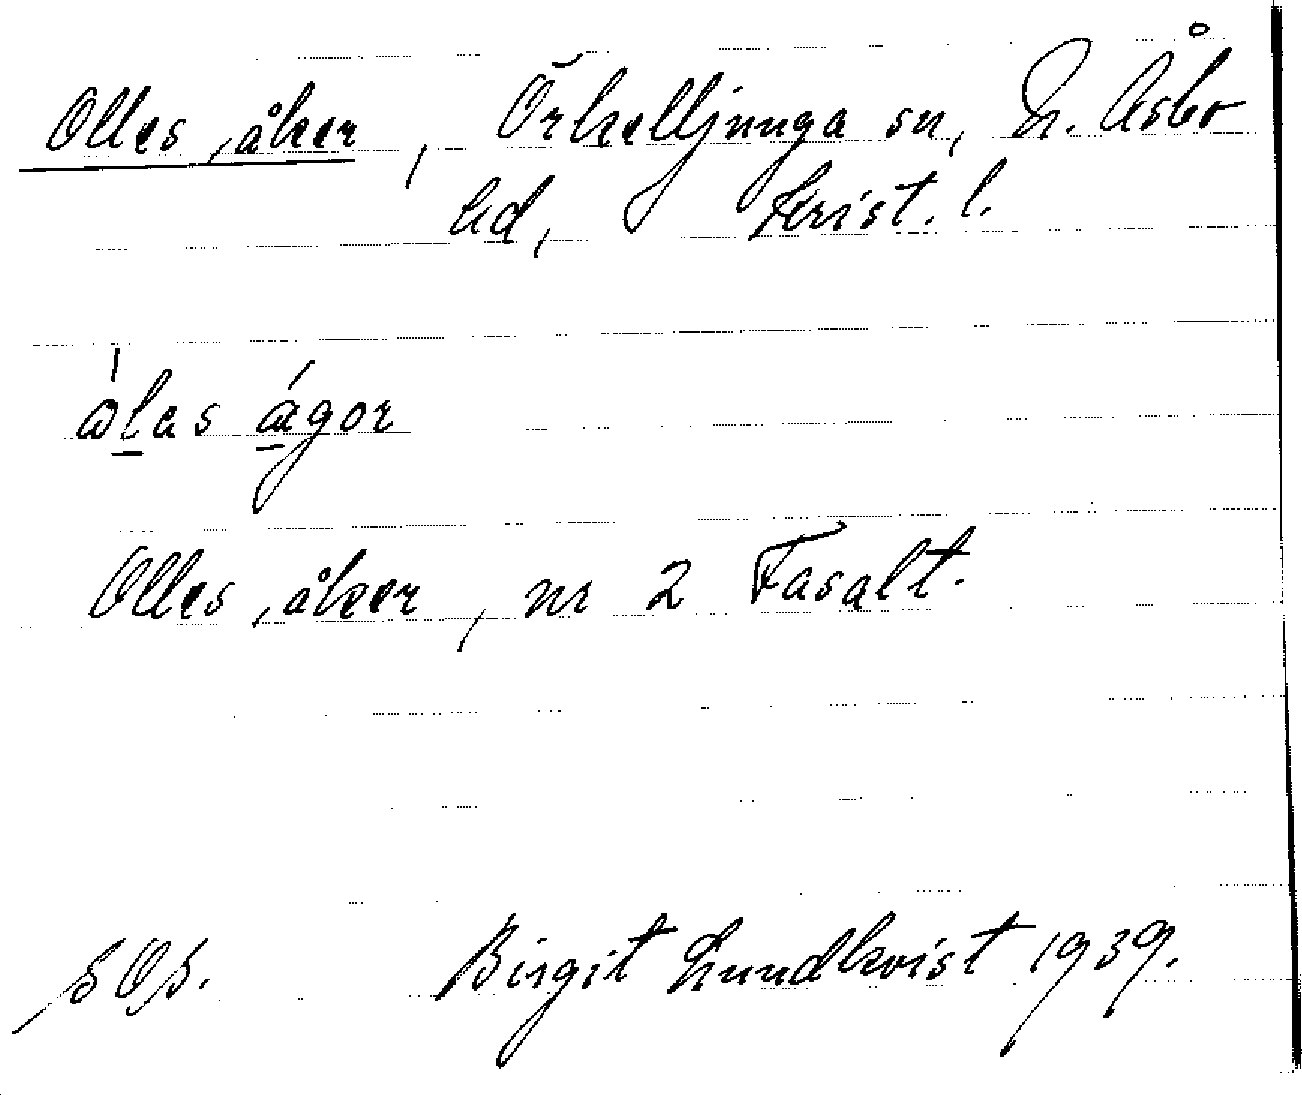 Olles ,åker, Örkelljunga sn, N. Åsbo
hd, Krist. l.
Olles ,åker, nr 2 Fasalt.
Birgit Lundkvist 1939.